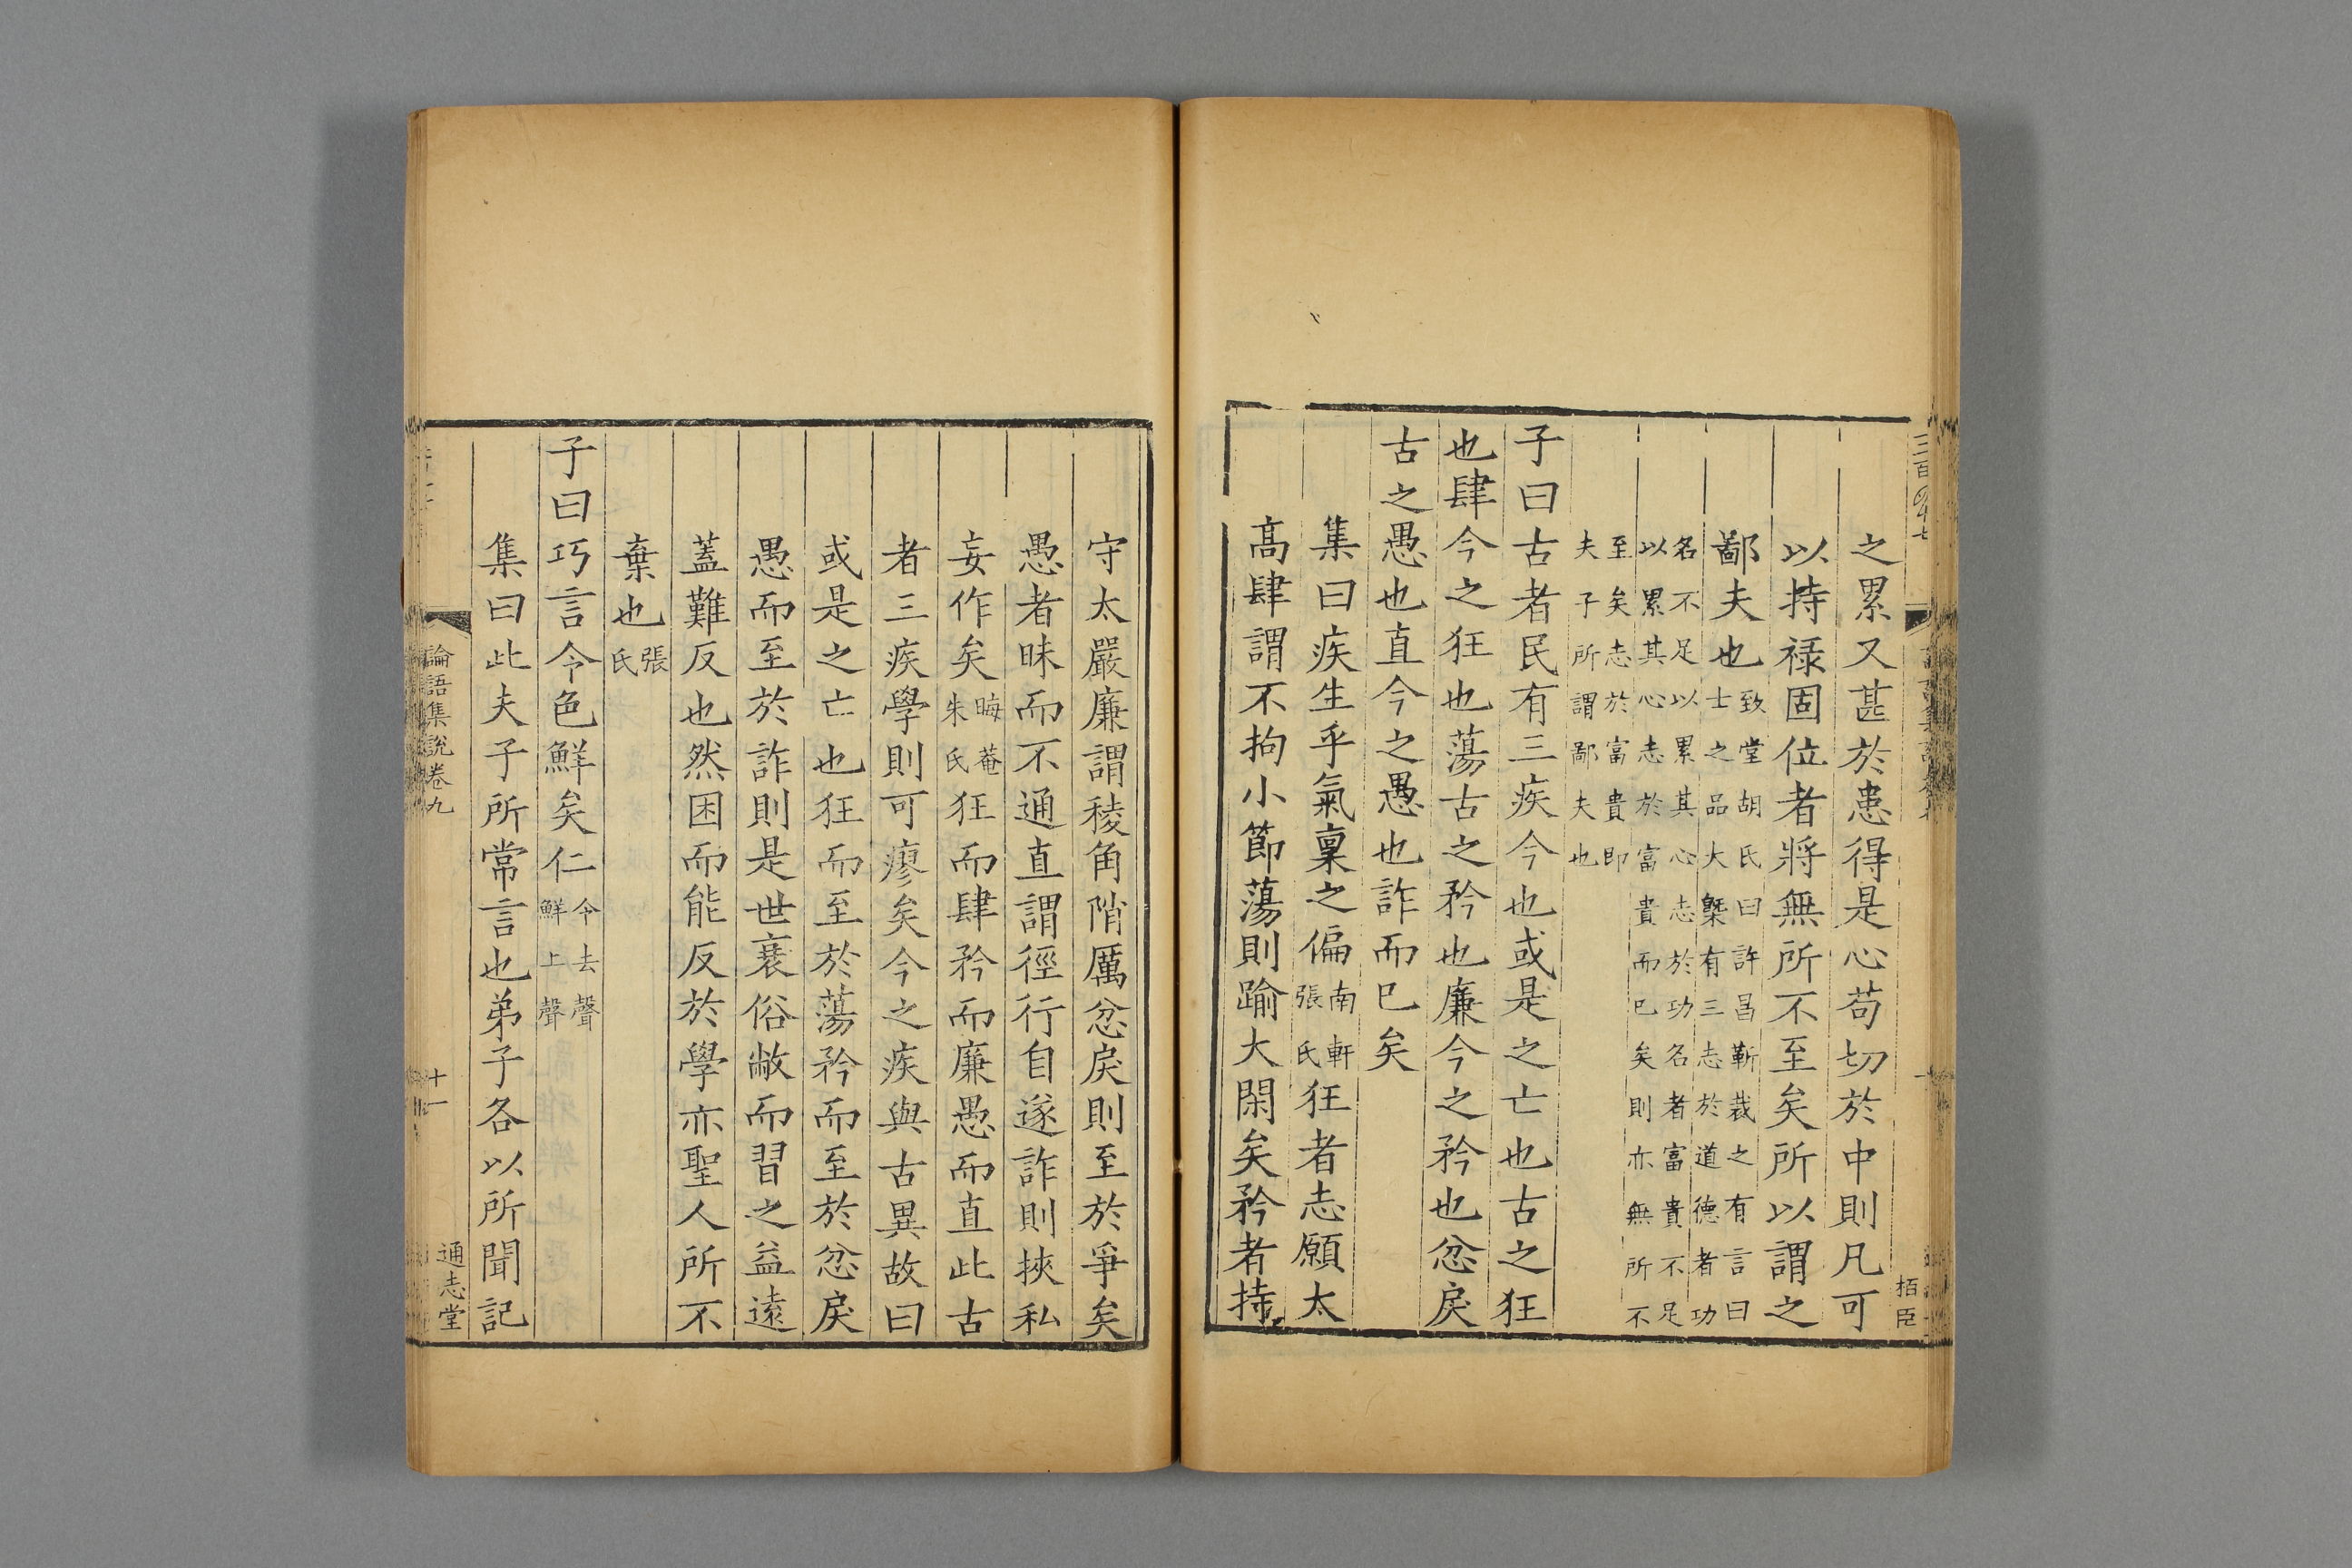 之累又甚於患得是心苟切於中則凡可
以持祿固位者將無所不至矣所以謂之
鄙夫也致堂胡氏曰許昌靳裁之有言曰士之品大槩有三志於道德者功
名不足以累其心志於功名者富貴不足以累其心志於富貴而巳矣則亦無所不
至矣志於富貴即夫子所謂鄙夫也
子曰古者民有三疾今也或是之亡也古之狂
也肆今之狂也蕩古之矜也廉今之矜也忿戾
古之愚也直今之愚也詐而巳矣
集曰疾生乎氣稟之偏南軒張氏狂者志願太
高肆謂不拘小節蕩則踰大閑矣矜者持
栢臣
守太嚴廉謂稜角陗厲忿戾則至於爭矣
愚者昧而不通直謂徑行自遂詐則挾私
妄作矣晦菴朱氏狂而肆矜而廉愚而直此古
者三疾學則可瘳矣今之疾與古異故曰
或是之亡也狂而至於蕩矜而至於忿戾
愚而至於詐則是世衰俗敝而習之益遠
蓋難反也然困而能反於學亦聖人所不
棄也張氏
子曰巧言令色鮮矣仁令去聲鮮上聲
集曰此夫子所常言也弟子各以所聞記
論語集說卷九
十一
通志堂